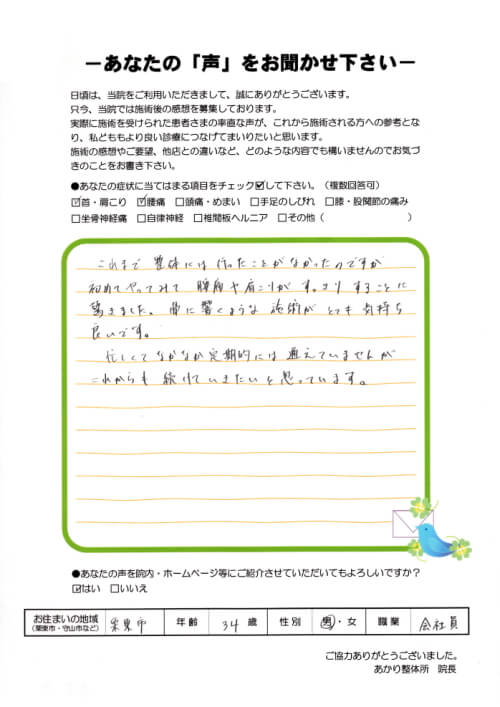 －あなたの「声」をお聞かせ下さい－
日頃は、当院をご利用いただきまして、誠にありがとうございます。
只今、当院では施術後の感想を募集しております。
実際に施術を受けられた患者さまの率直な声が、これから施術される方への参考とな
り、私どももより良い診療につなげてまいりたいと思います。
施術の感想やご要望、他店との違いなど、どのような内容でも構いませんのでお気づ
きのことをお書き下さい。
●あなたの症状に当てはまる項目をチェック☑して下さい。（複数回答可）
☑首・肩こり ☑腰痛 □頭痛・めまい □手足のしびれ □膝・股関節の痛み
□坐骨神経痛 □自律神経 □椎間板ヘルニア □その他（ ）
これまで整体には行ったことがなかったのですが
初めてやってみて腰痛や肩こりがすっきりすることに
驚きました。骨に響くような施術がとても気持ち
良いです。
忙しくてなかなか定期的には通えていませんが
これからも続けていきたいと思っています。
●あなたの声を院内・ホームページ等にご紹介させていただいてもよろしいですか？
☑はい □いいえ
お住まいの地域 栗東市 年齢 34歳 性別 男・女 職業 会社員
（栗東市・守山市など）
ご協力ありがとうございました。
あかり整体所 院長